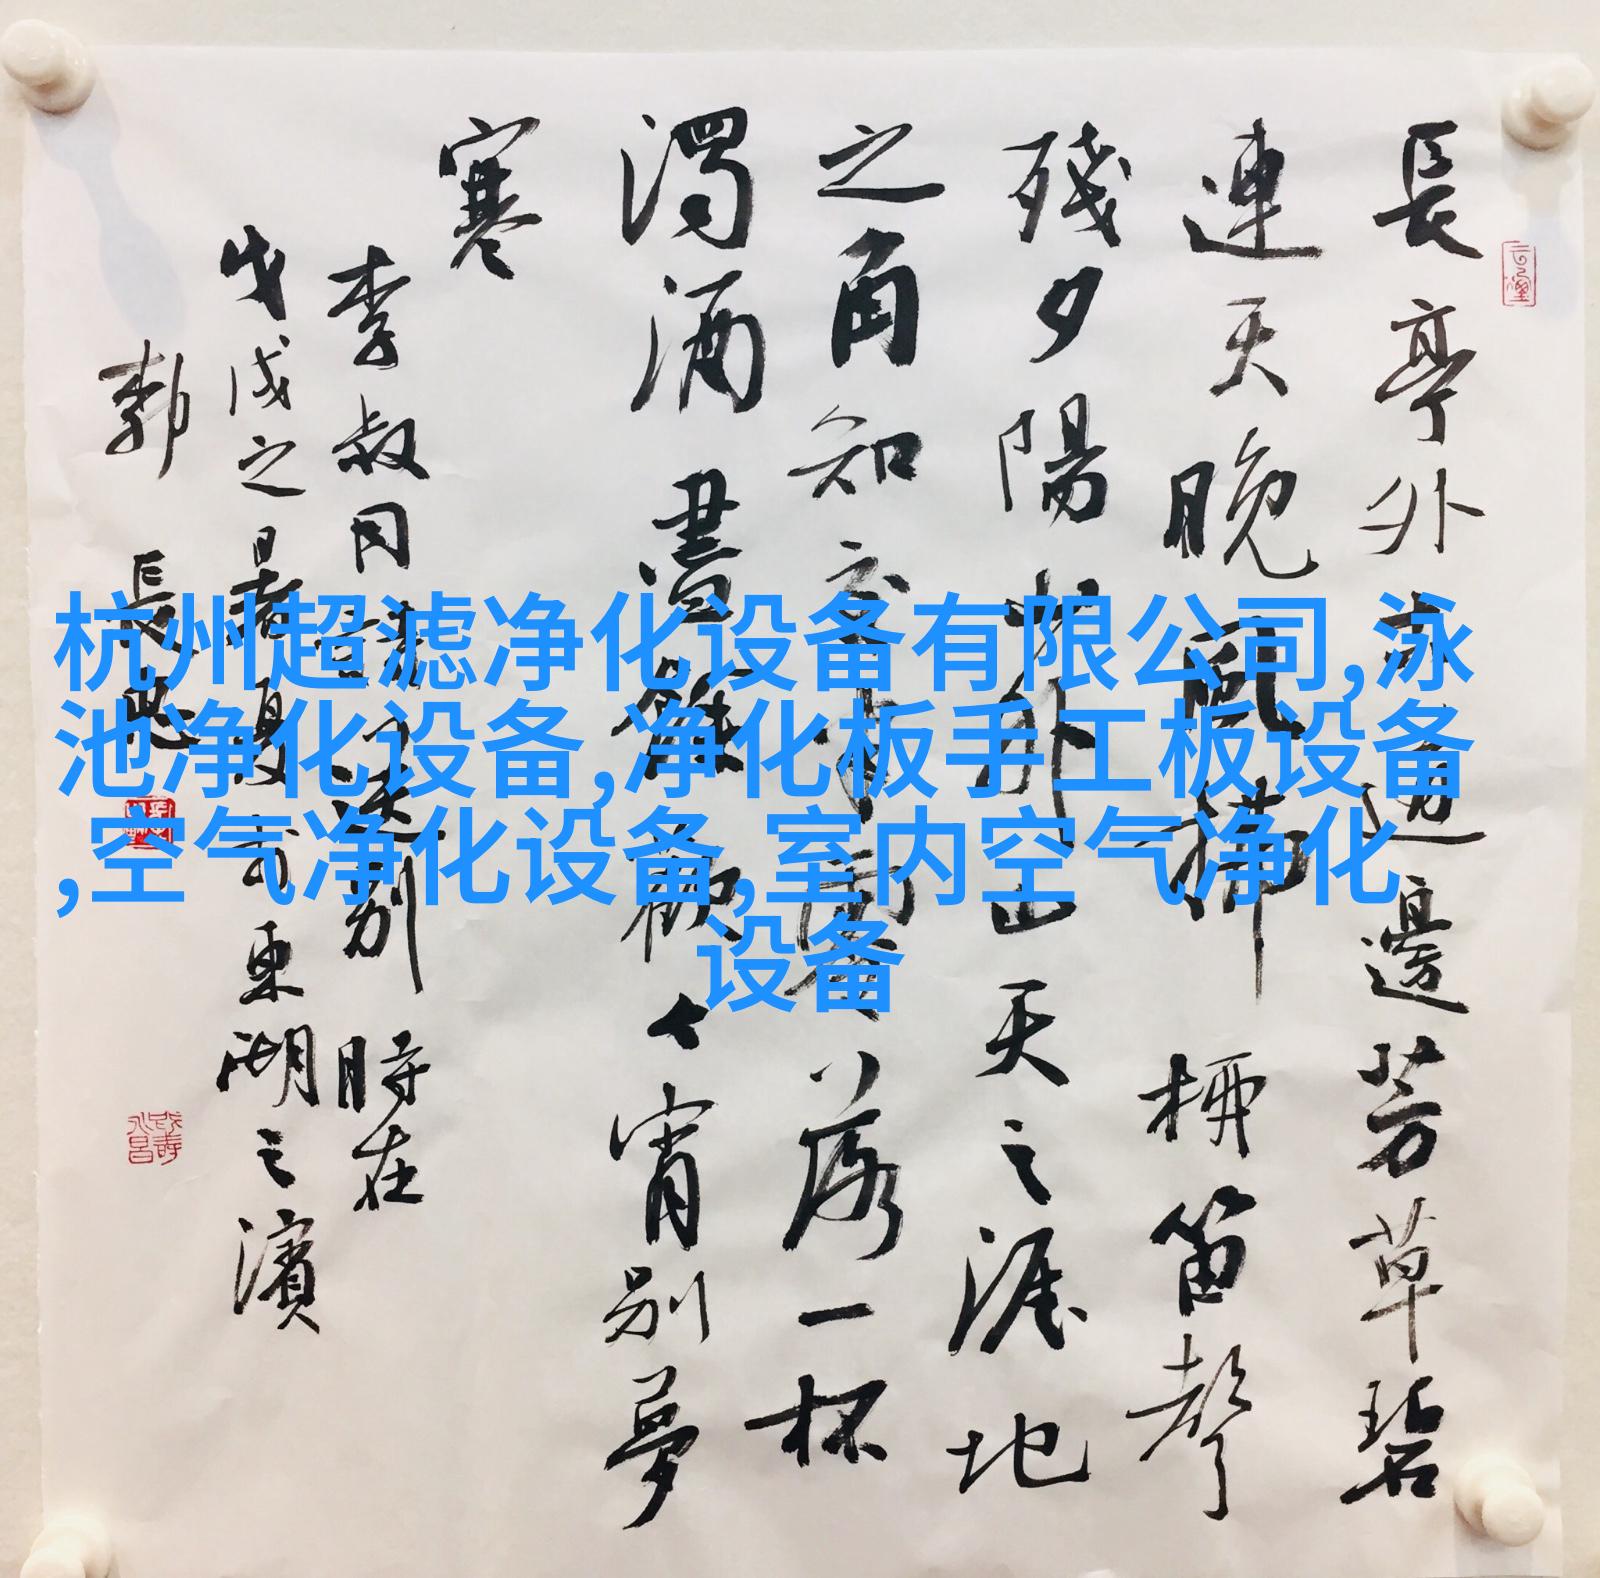 長亭外古道邊芳草碧
連天晚風拂柳笛聲
殘夕陽山外山天之涯地
之角知交半零落一杯
濁酒盡餘歡今宵別夢
寒
李叔同詩送別 時在
戊戌之暑夏於東湖之濱
長
杭州超滤净化设备有限公司,泳
池净化设备,净化板手工板设备
,空气净化设备,室内空气净化
设备